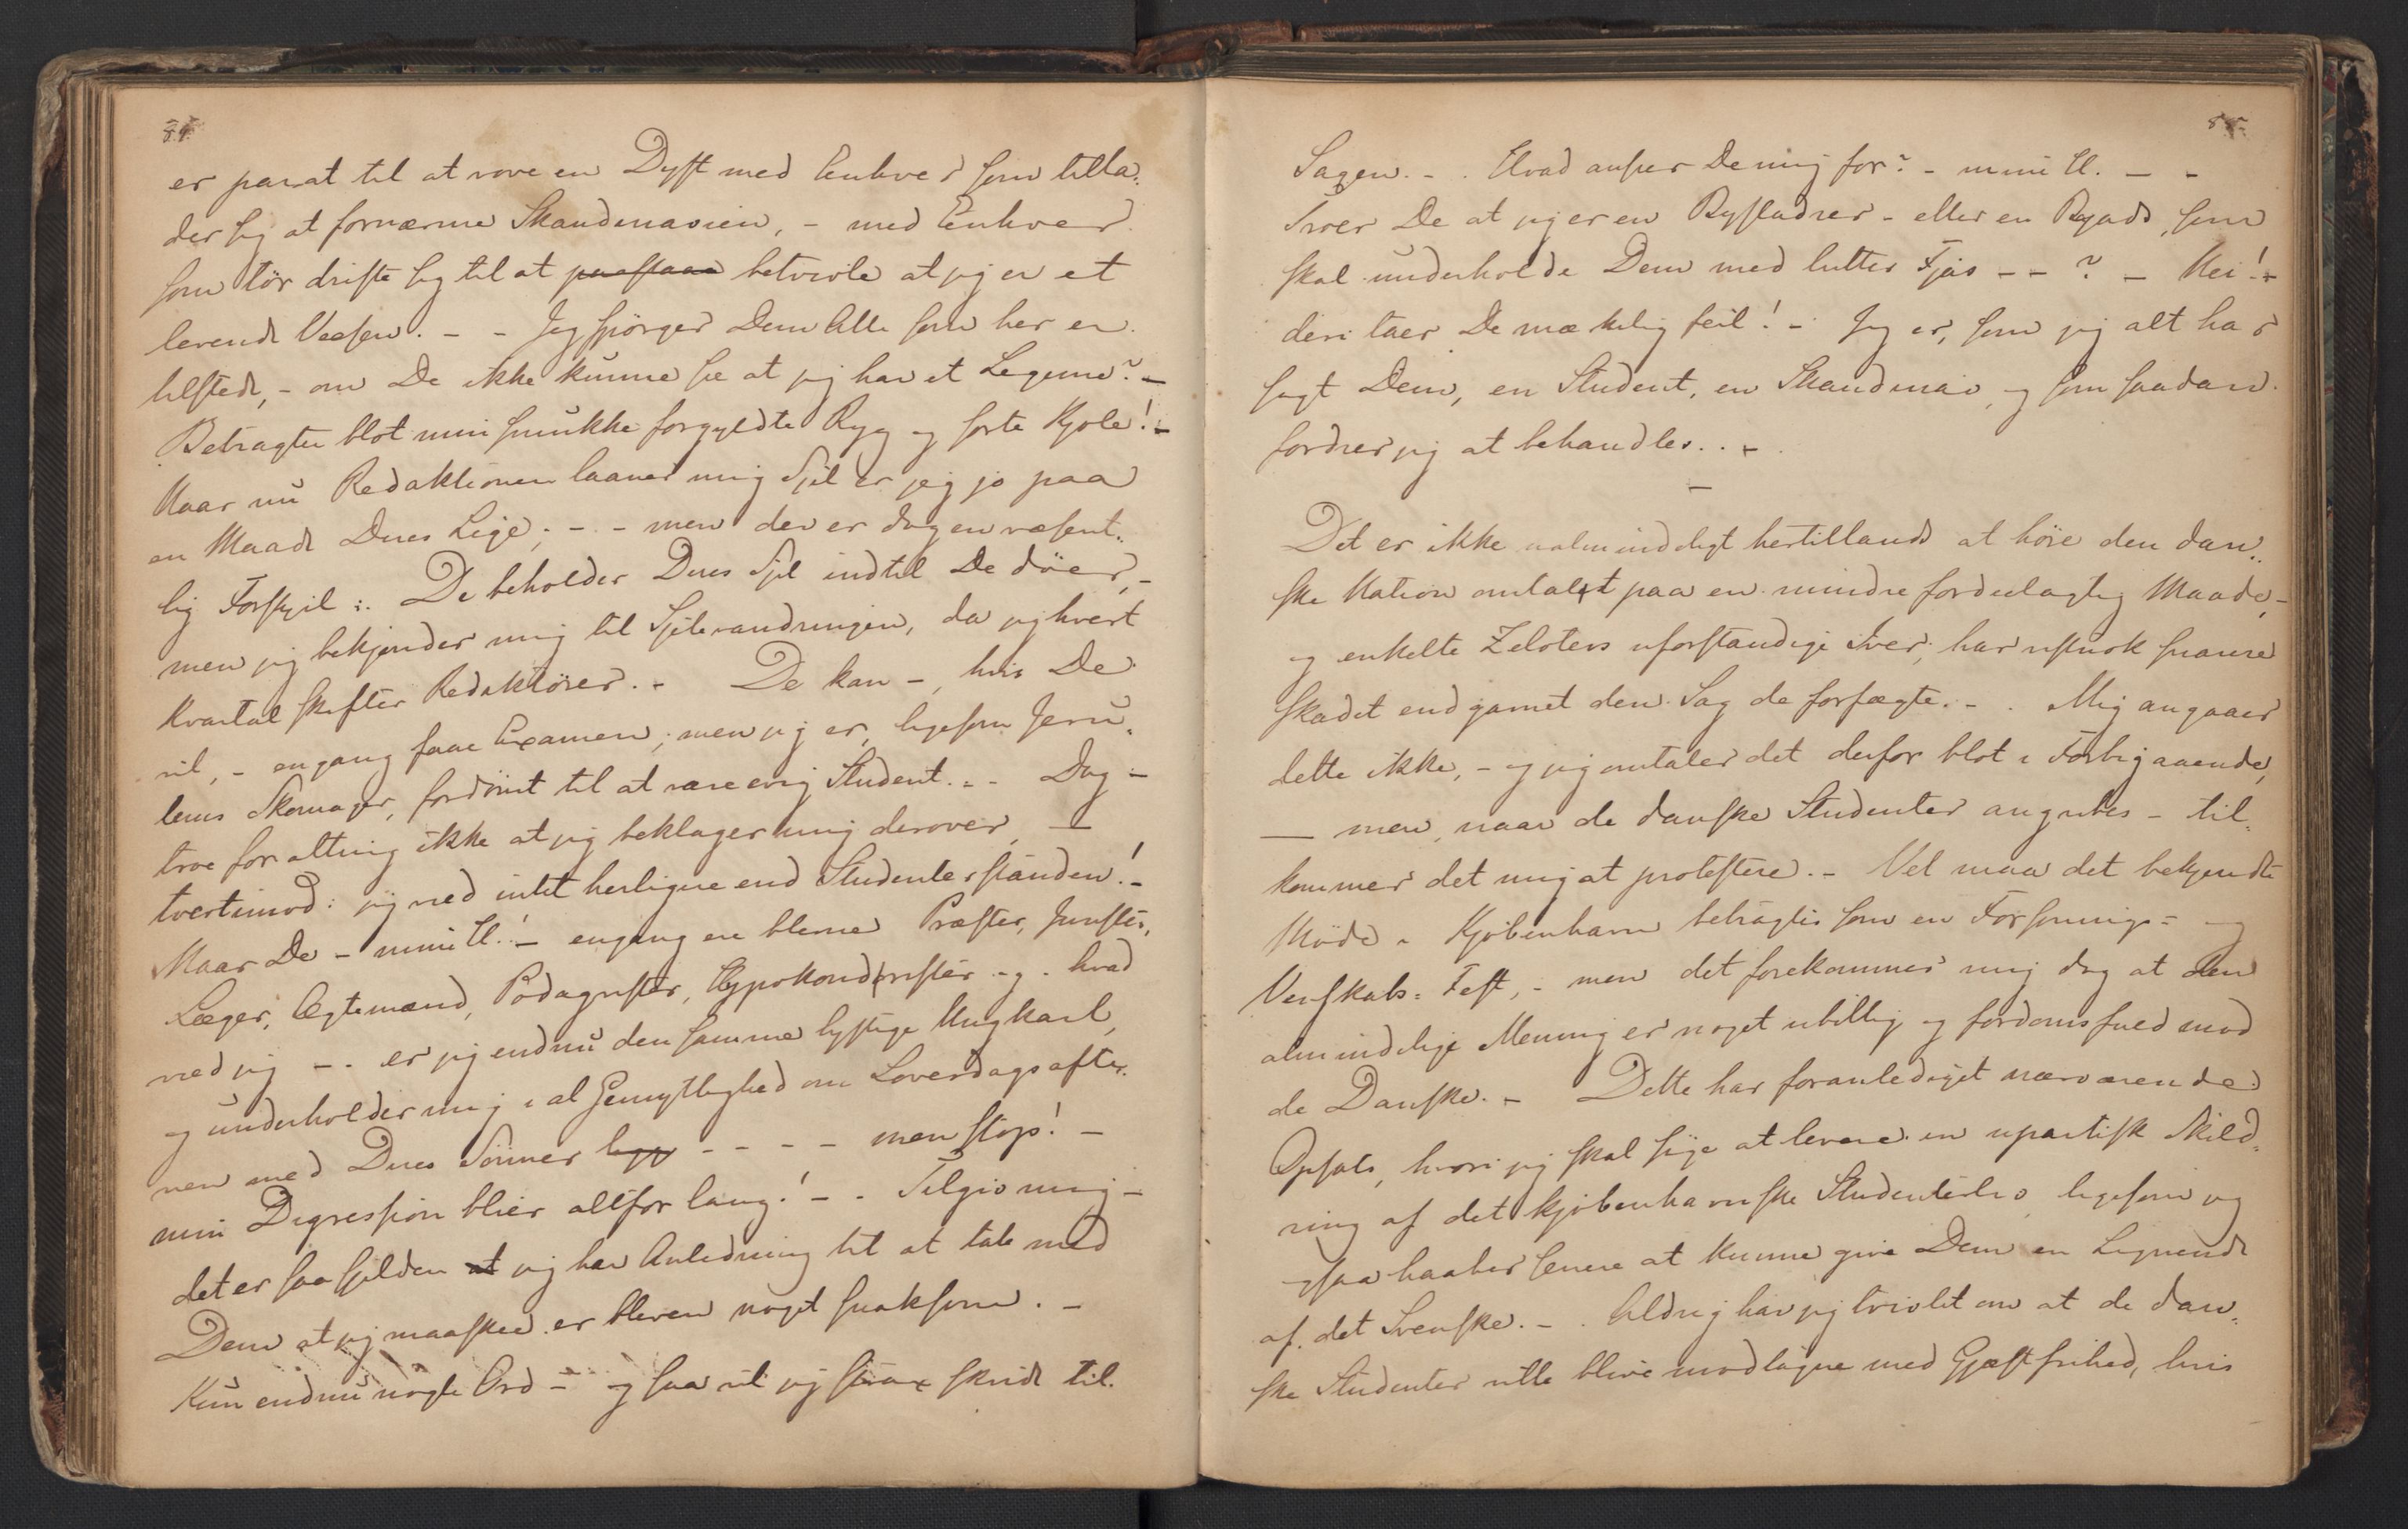 84.
er parat til at vove en Dyst med Enhver som tilla-
der sig at fornærme Skandinavien, - med Enhver
som tör driste sig til at paastaae betvivle at jeg er et
levende Væsen. - - Jeg spörger Dem Alle som her er
tilstede, - om De ikke kunne see at jeg har et Legeme? -
Betragter blot min smukke forgyldte Ryg og sorte Kjole! -
Naar nu Redaktionen laaner mig Sjel er jeg jo paa
en Maade Deres Lige; - - men der er dog en væsent-
lig Forskjel :. De beholder Deres Sjel indtil De döer, -
men jeg bekjender mig til Sjelevandringen, da jeg hvert
Kvartal skifter Redaktörer. - De kan -, hvis De
vil, - engang faae Examen; men jeg er, ligesom Jeru-
lems Skomager, fordömt til at være evig Student. - - Dog -
troe for alting ikke at jeg beklager mig derover, -
tvertimod: jeg ved intet herligere end Studenterstanden! -
Naar De - mine H.! - engang ere blevne Præster, Jurister,
Læger, Ægtemænd, Podagrister, Hypokondrister - og - hvad
ved jeg - - er jeg endnu den samme lystige Ungkarl,
og underholder mig i al Gemytlighed om Löverdagsafte-
nen med Deres Sönner - - - - men stop! -
min Digression blier altfor lang! - - Tilgiv mig -
det er saa sjelden at jeg har Anledning til at tale med
Dem at jeg maaskee er bleven noget snaksom. -
Kun endnu nogle Ord - og saa vil jeg strax skride til
85.
Sagen. - . Hvad anser De mig for? - mine H. - -
Troer De at jeg er en Bysladrer - eller en Bajads, som
skal underholde Dem med lutter Fjas - - ? - Nei! -
deri taer De mækelig feil! - Jeg er, som jeg alt har
sagt Dem, en Student, en Skandinav, og som saadan
fordrer jeg at behandles. . -
-
Det er ikke ualmindeligt hertillands at höre den dan-
ske Nation omtalt paa en mindre fordeelagtig Maade, -
og enkelte Zeloters uforstandige Iver, har vistnok snarere
skadet end gavnet den Sag de forfægte. - . Mig angaaer
dette ikke, - og jeg omtaler det derfor blot i Forbigaaende,
- men, naar de danske Studenter angribes - til-
kommer det mig at protestere. - Vel maa det bekjendte
Möde i Kjöbenhavn betragtes som en Forsonings- og
Venskabs-Fest, - men det forekommer mig dog at den
almindelige Mening er noget ubillig og fordomsfuld mod
de Danske. - Dette har foranlediget nærværende
Opsats, hvori jeg skal söge at levere en upartisk Skild-
ring af det kjöbenhavnske Studenterliv, ligesom jeg
ogsaa haaber senere at kunne give Dem en Lignende
af det Svenske. - . Aldrig har jeg tvivlet om at de dan-
ske Studenter ville blive modtagne med Gjæstfrihed, hvis